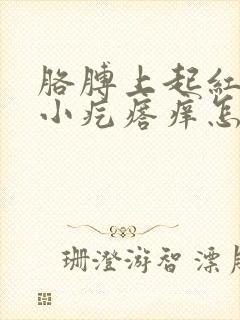 胳膊上起红
小疙瘩痒怎
珊澄游智漂